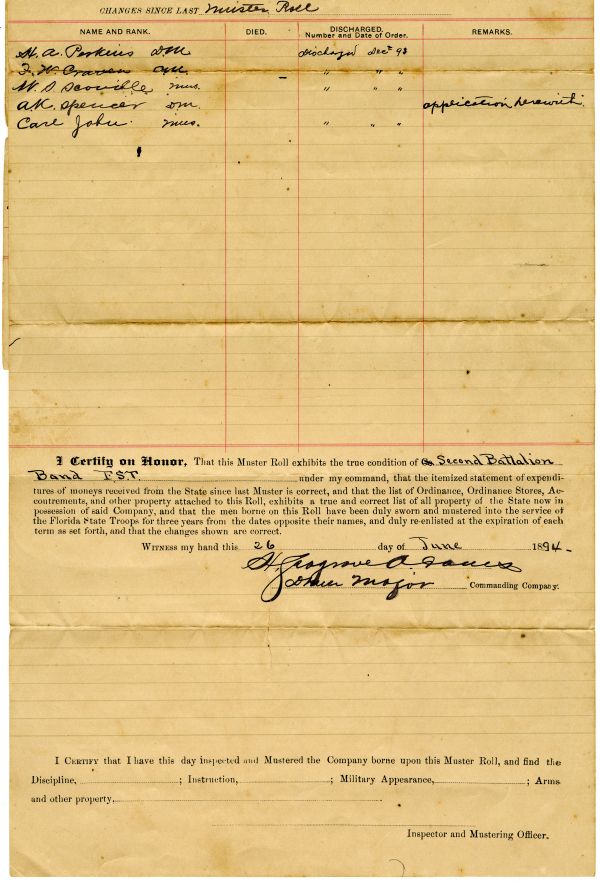 CHANGES SINCE LAST Muster Roll
NAME AND RANK. DIED. DISCHARGED. Number and Date of Order. REMARKS.
H. A. Perkins D.M. Discharged Dect 93
F. W. Craven " " "
W. S. Scoville mus. " " "
A.K. Spencer DM. application herewith.
Carl John mus. " " "
I Certify on Honor, That this Muster Roll exhibits the true condition of Second Battalion
Band F.S.T. under my command, that the itemized statement of expendi-
tures of moneys received from the State since last Muster is correct, and that the list of Ordinance, Ordinance Stores, Ac-
coutrements, and other property attached to this Roll, exhibits a true and correct list of all property of the State now in
possession of said Company, and that the men borne on this Roll have been duly sworn and mustered into the service of
the Florida State Troops for three years from the dates opposite their names, and duly re-enlisted at the expiration of each
term as set forth, and that the changes shown are correct.
WITNESS my hand this 26 day of June 1894
Drum Major Commanding Company.
I CERTIFY that I have this day inspected and Mustered the Company borne upon this Muster Roll, and find the
Discipline, ; Instruction, ; Military Appearance, ; Arms
and other property,
Inspector and Mustering Officer.